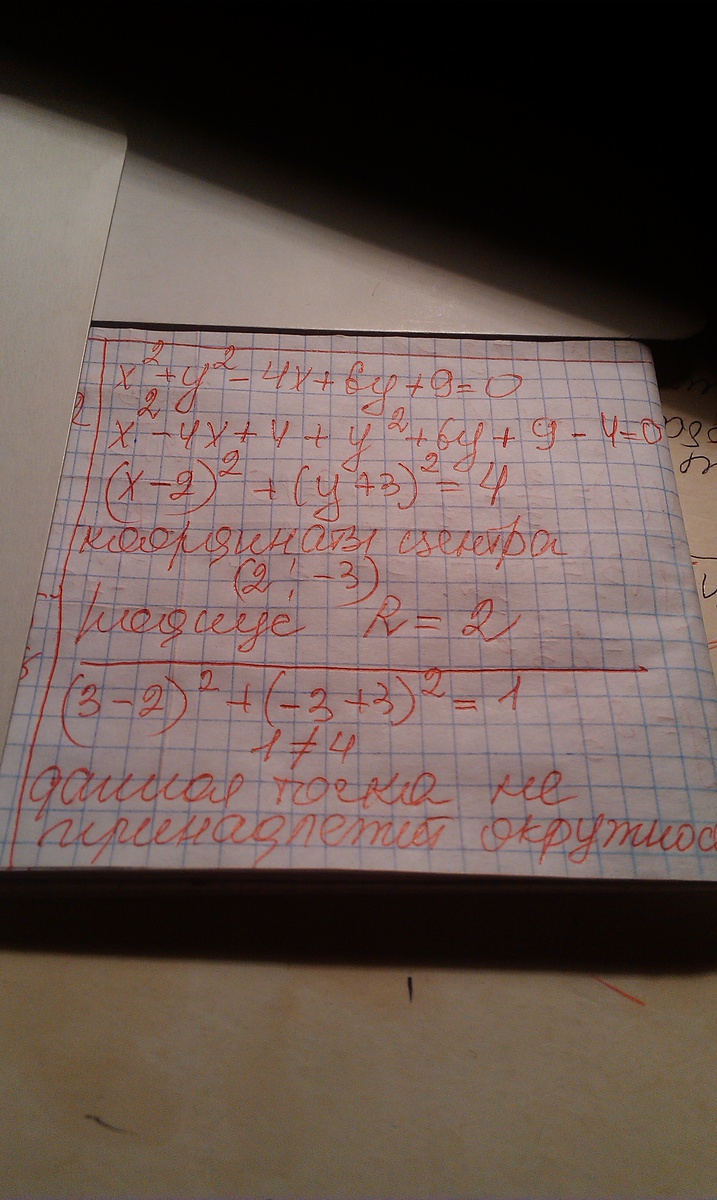 x² + y² - 4x + 6y + 9 = 0
x² - 4x + 4 + y² + 6y + 9 - 4 = 0
(x-2)² + (y+3)² = 4
координаты центра
(2; -3)
Радиус R = 2
(3-2)² + (-3+3)² = 1
1 ≠ 4
данная точка не
принадлежит окружнос